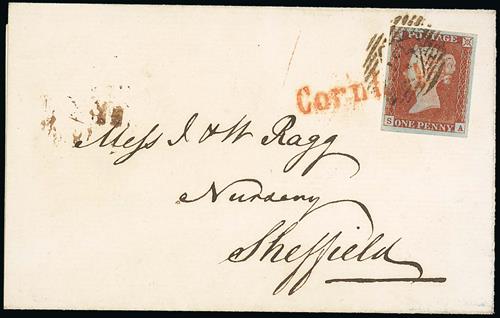 POSTAGE
Corn
S ONE PENNY A
Mess J & W Ragg
Nursery
Sheffield